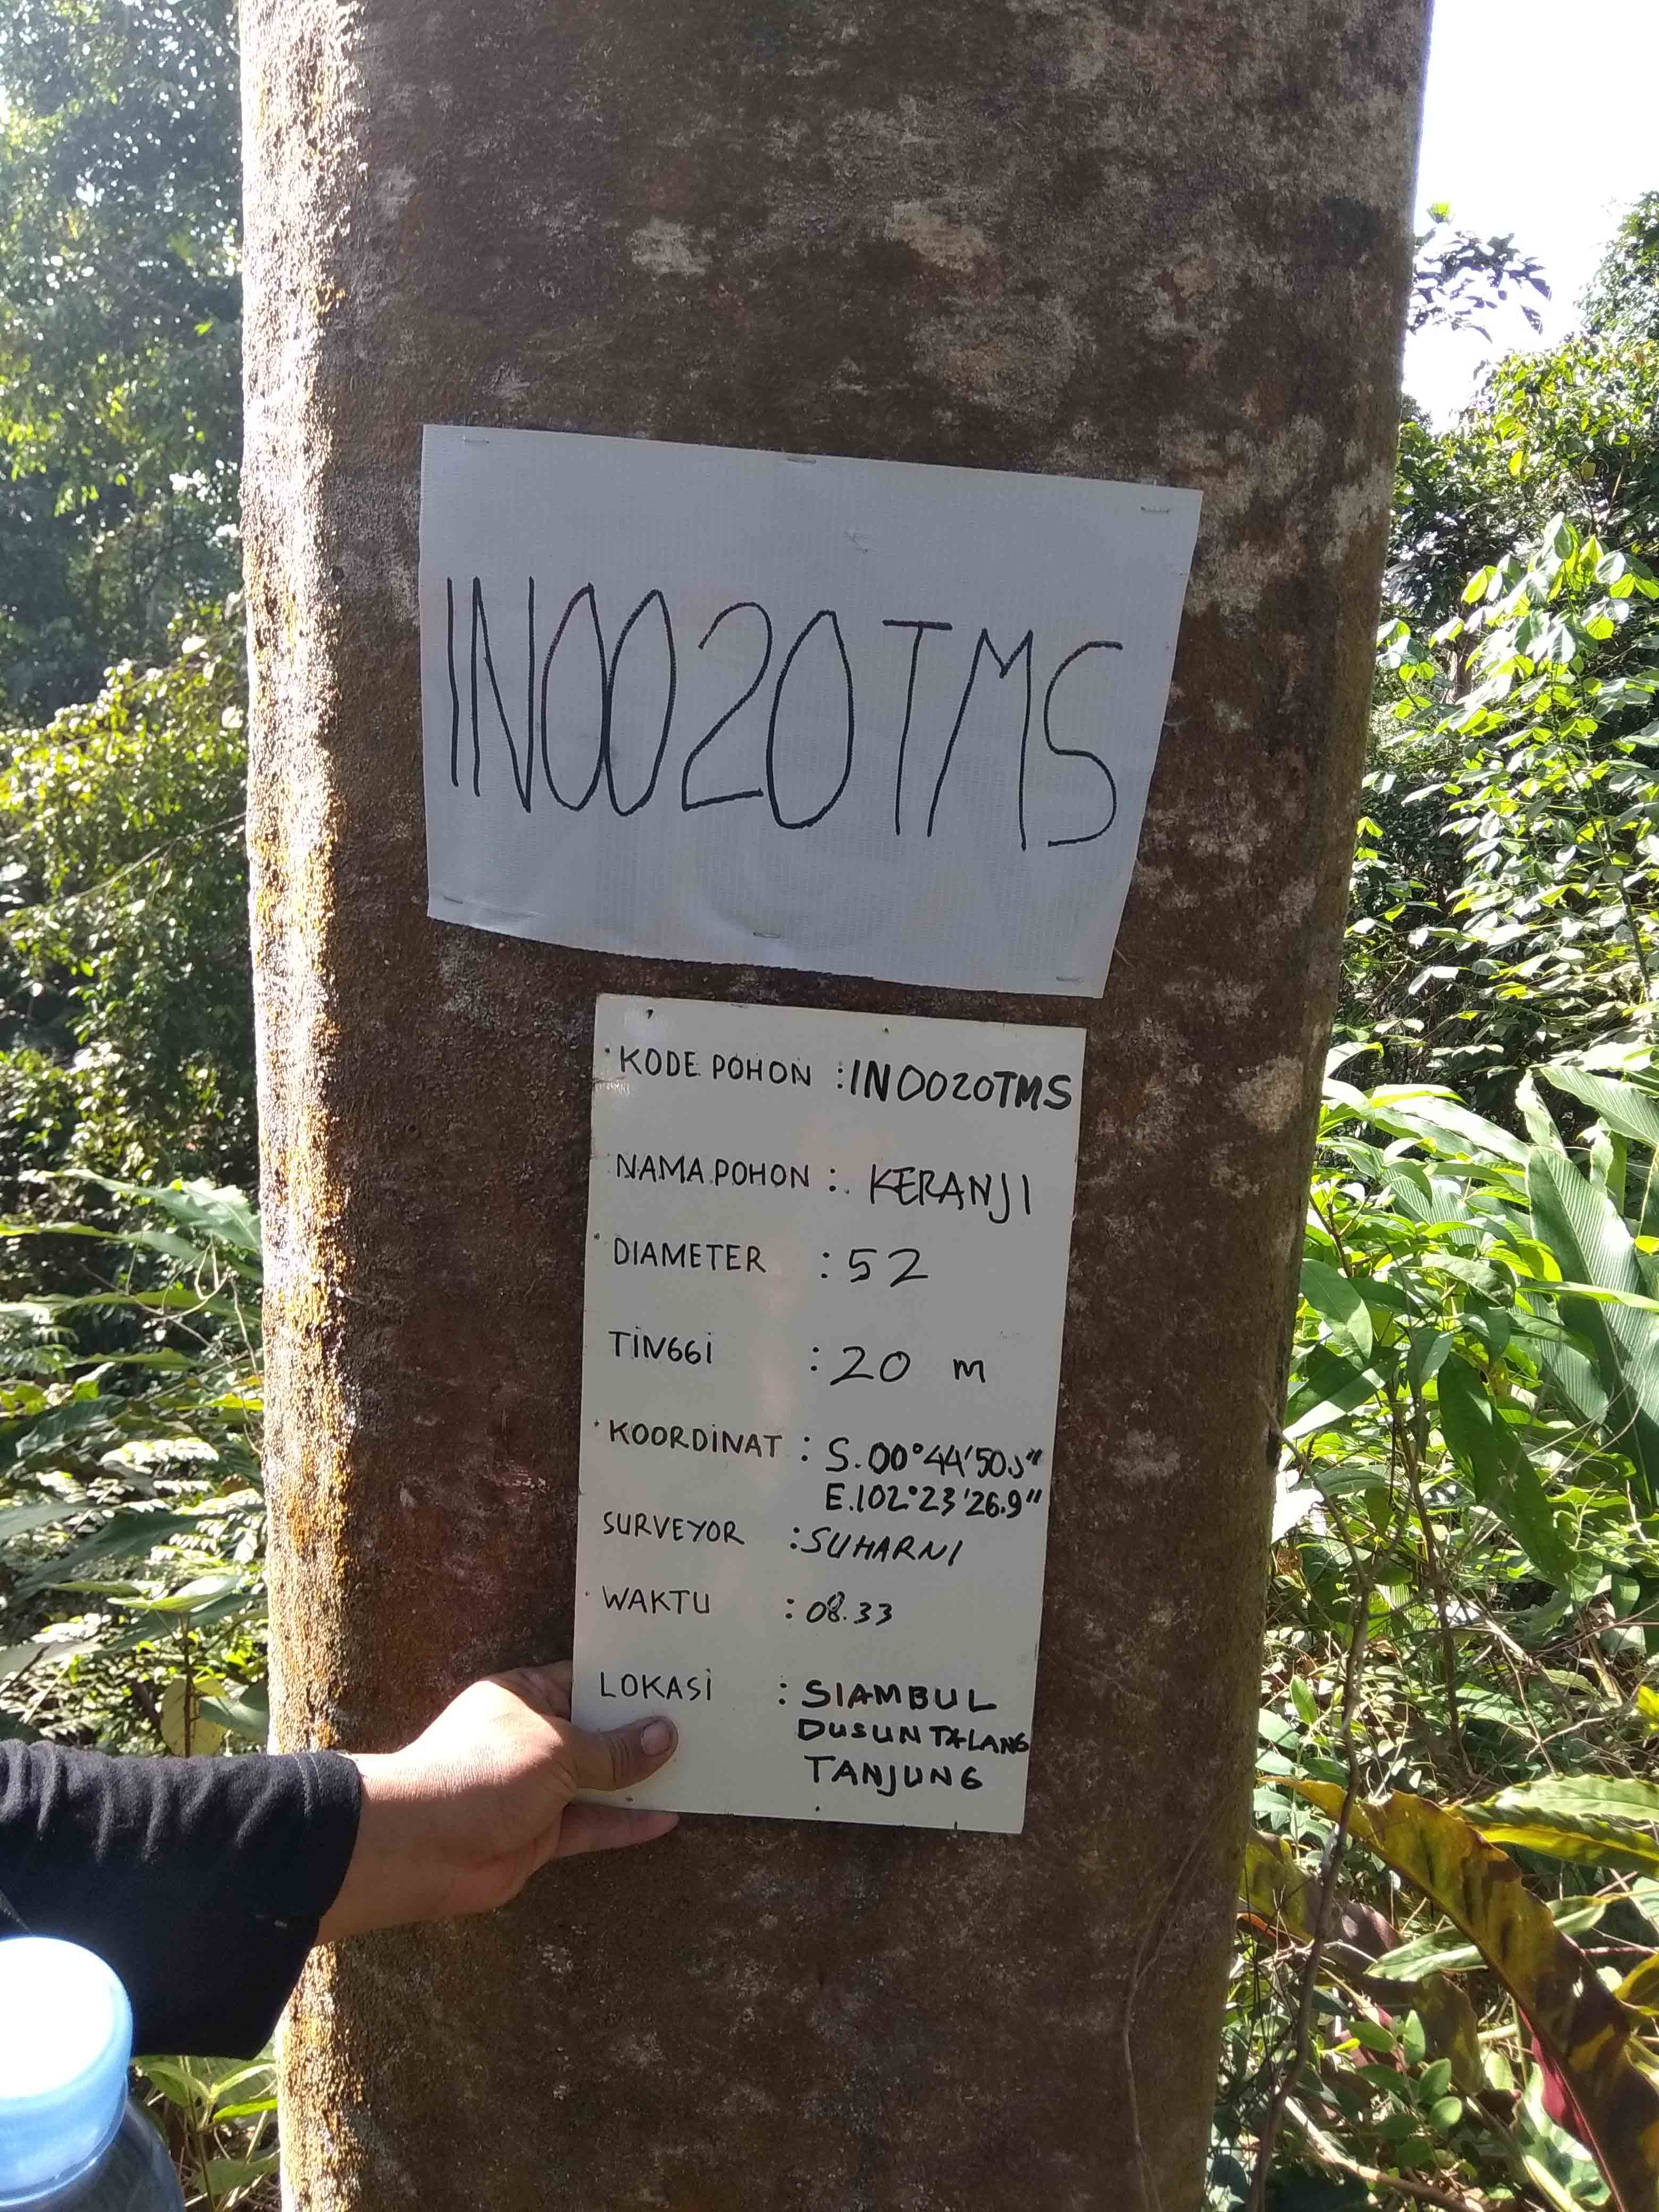 IN0020TMS
KODE POHON : IN0020TMS
NAMA POHON : KERANJI
DIAMETER : 52
TINGGI : 20 m
KOORDINAT : S.00°44'
E.102°23'26.9"
SURVEYOR : SUHARNI
WAKTU : 08.33
LOKASI : SIAMBUL
DUSUN TALANG
TANJUNG